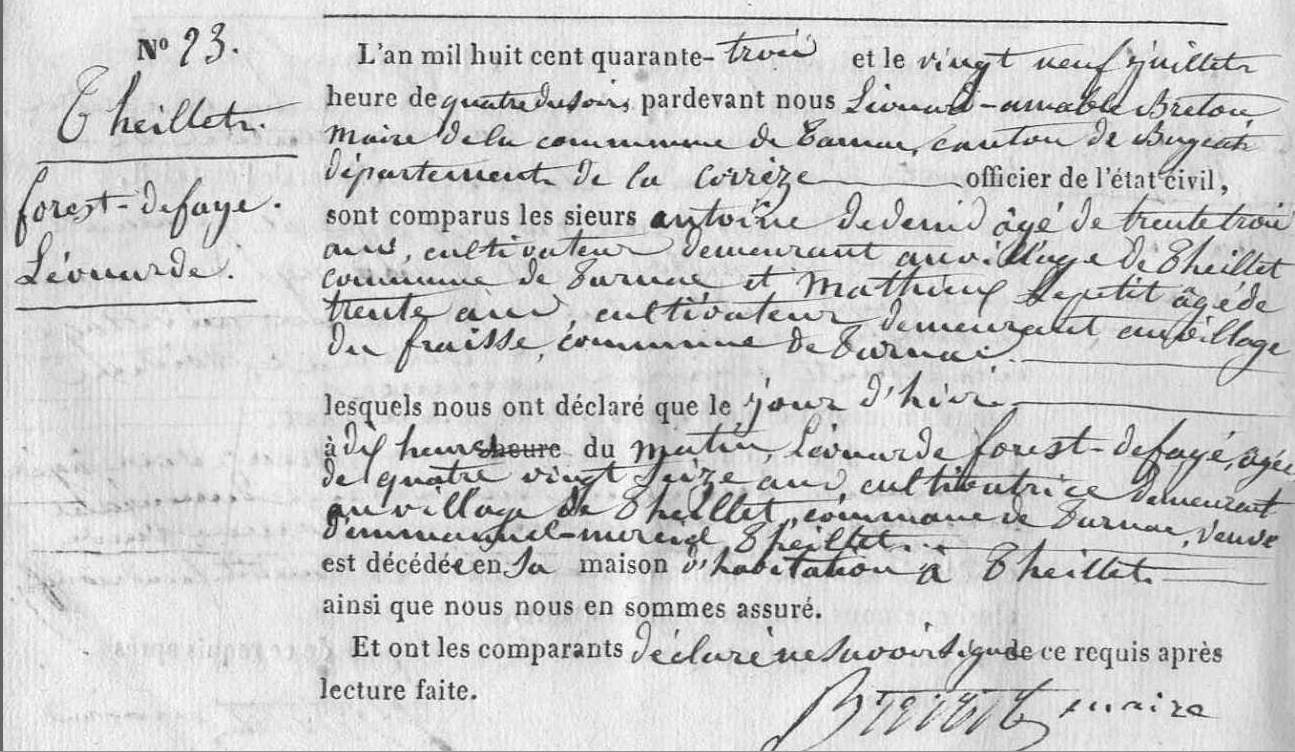 N° 23.
Theillet.
forest-defaye.
Léonarde.
L'an mil huit cent quarante-trois et le vingt neuf juillet
heure de quatre du soir, pardevant nous Léonard-amable Breton,
Maire de la commune de Tarnac, canton de Bugeat
département de la Corrèze officier de l'état civil,
sont comparus les sieurs antoine dedenis âgé de trente trois
ans, cultivateur demeurant au village de Theillet
commune de Tarnac et Mathieu Lepetit âgé de
trente ans, cultivateur demeurant, au village
du fraisse, commune de Tarnac.
lesquels nous ont déclaré que le jour d'hier
à dix heures heure du matin, Léonarde forest-defaye, âgée
de quatre vingt seize ans, cultivatrice demeurant
au village de Theillet, commune de Tarnac, veuve
Theillet.
est décédée en sa maison d'habitation à Theillet.
ainsi que nous nous en sommes assuré.
Et ont les comparants déclaré ne savoir signer de ce requis après
lecture faite.
Breton maire